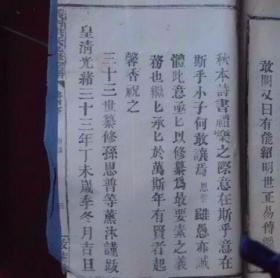 敢闕又曰有能紹明世正易傳
秋本詩書禮樂之際意在斯乎意在
斯乎小子何敢讓焉恩普雖愚亦誠
體此意亟亟以修纂為最要緊之義
務也繼繼承承於萬斯年有賢者起
馨香祝之
三十三世纂修孫恩普等薰沐謹跋
皇清光緒三十三年丁未歲季冬月吉旦